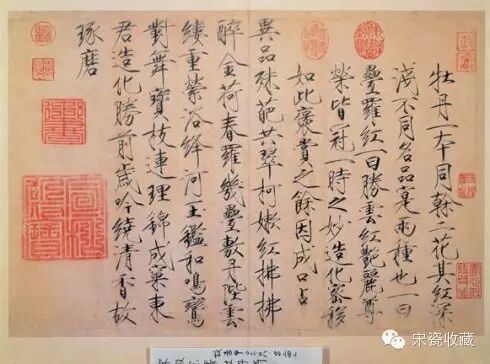 牡丹一本同榦二花其紅深
淺不同名品寔兩種也一曰
疊羅紅一曰勝雲紅艷麗尊
榮皆冠一時之妙造化密移
如此褒賞之餘因成口占
異品殊葩共翠柯嫩紅拂拂
醉金荷春羅幾疊敷丹陛雲
縷重縈浴絳河玉鑑和鳴鸞
對舞寶枝連理錦成窠東
君造化勝前歲吟繞清香故
琢磨
宋瓷收藏